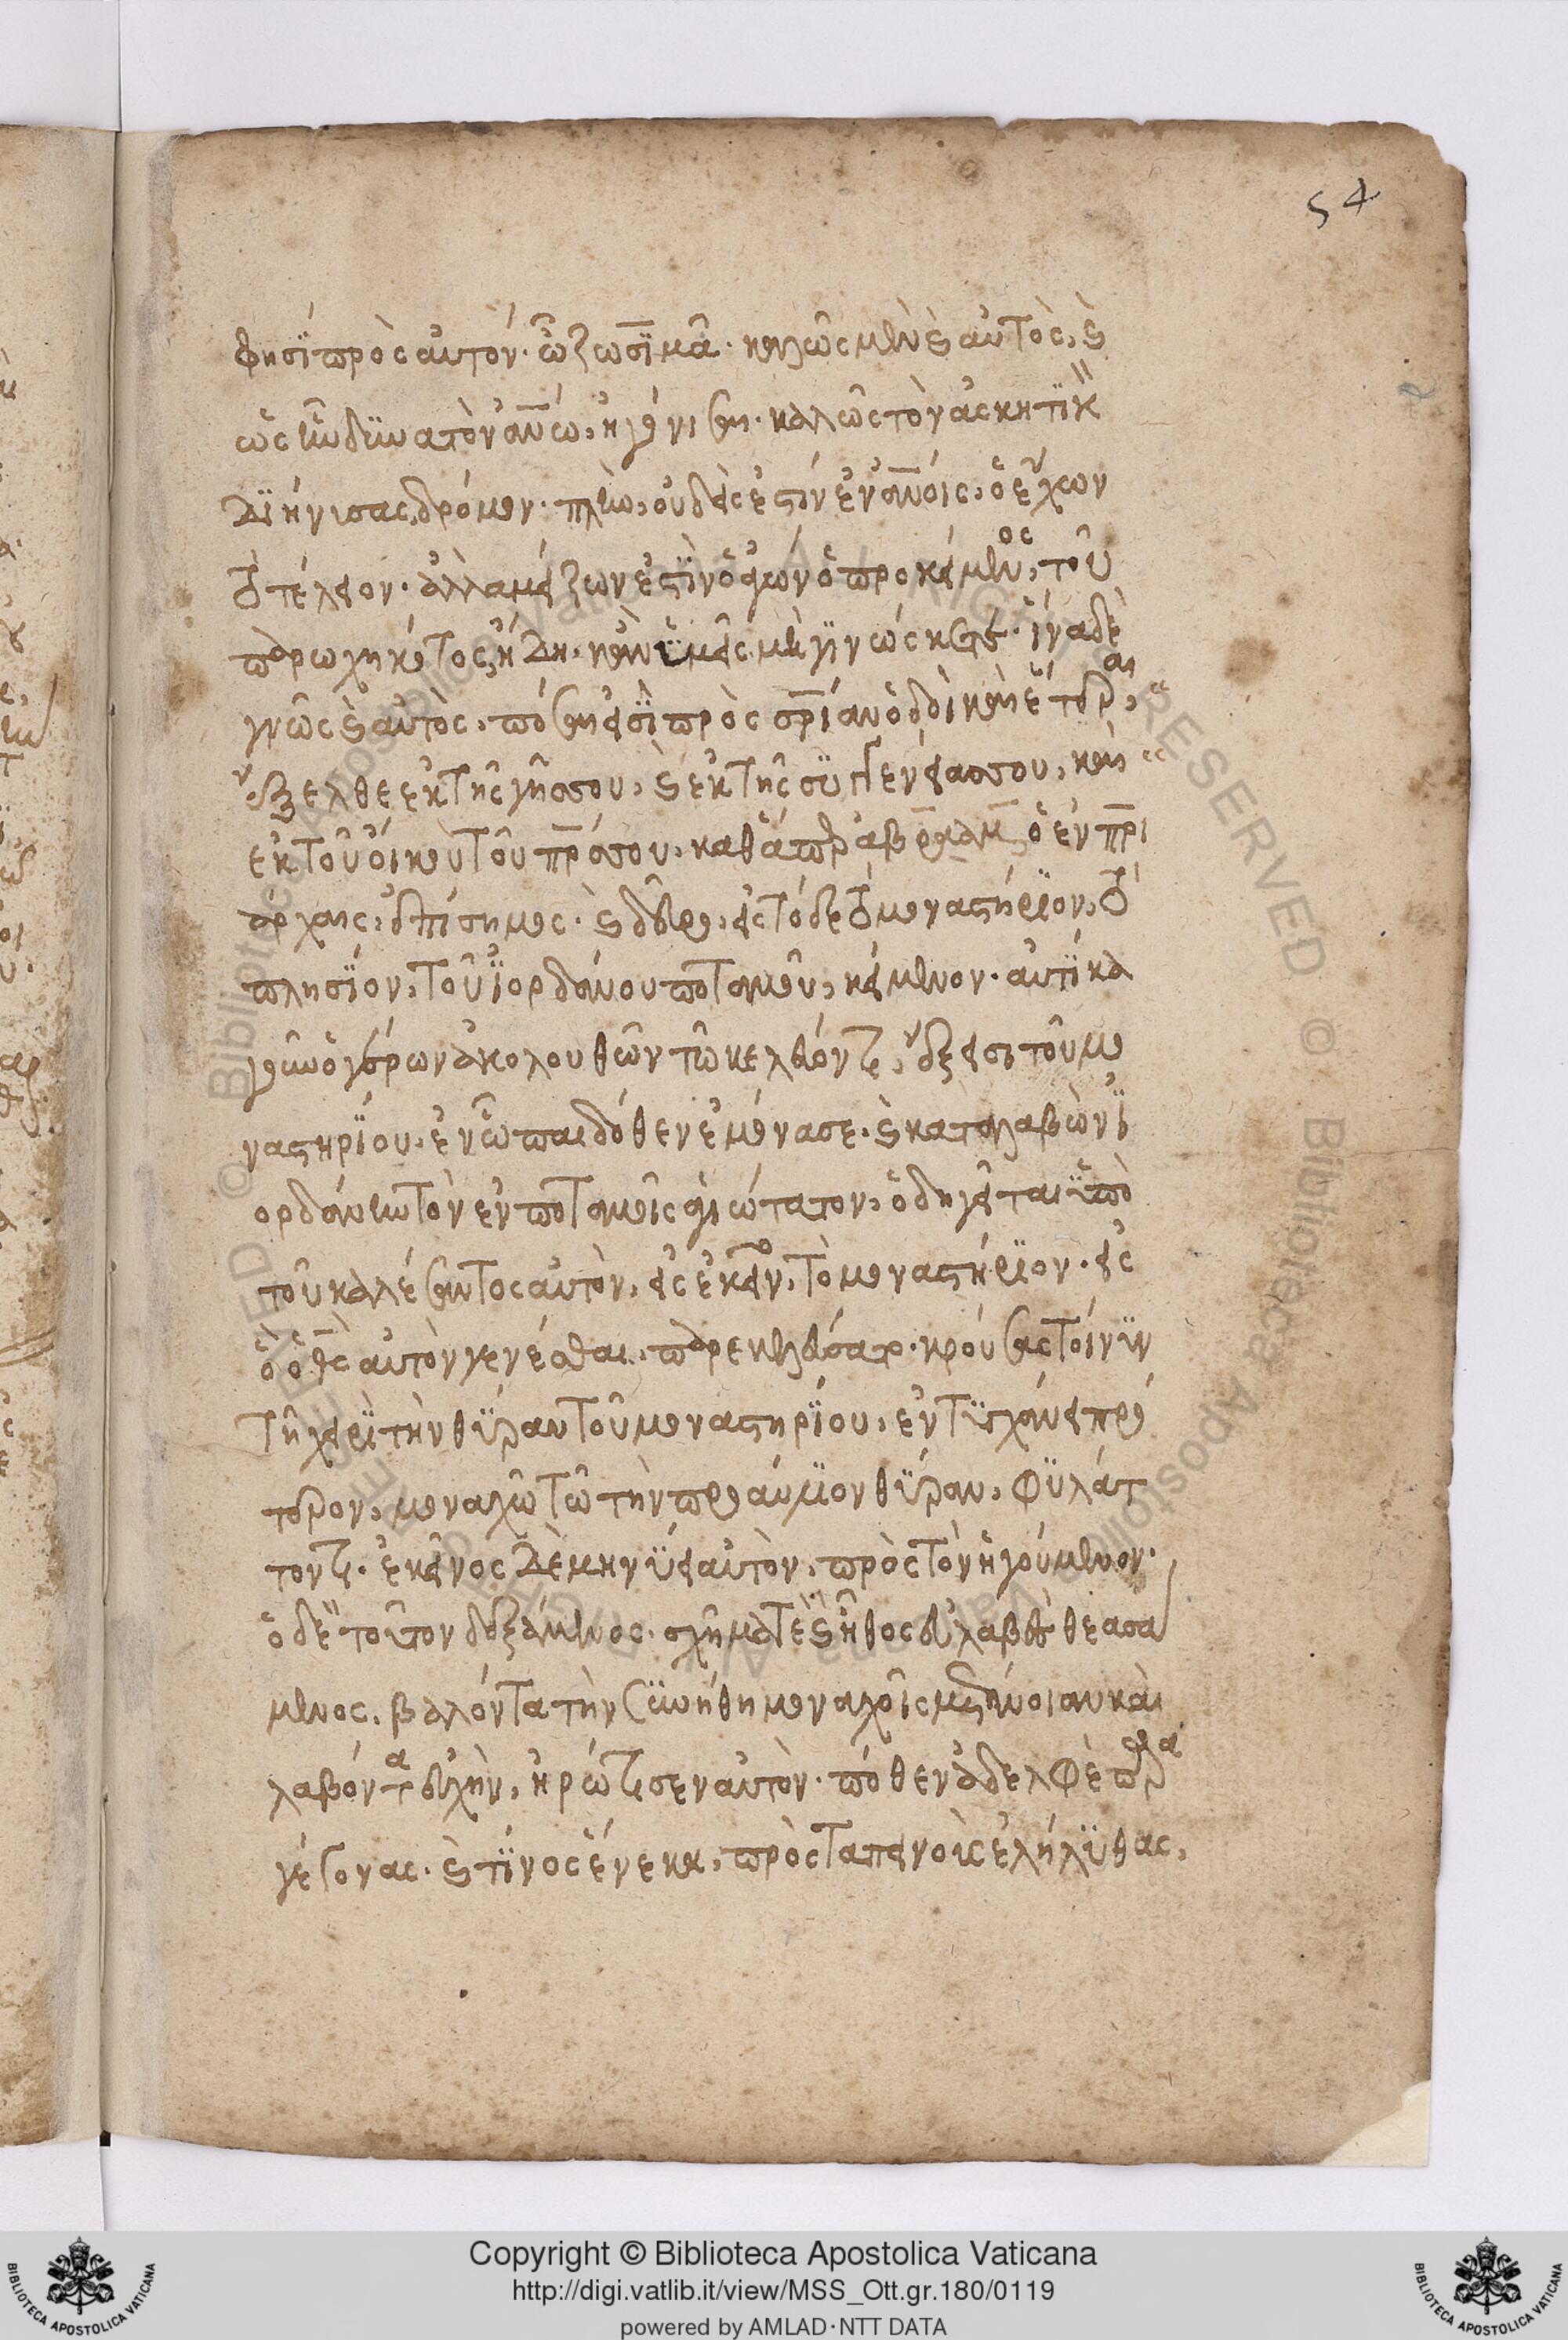 54
φησὶ πρὸς αὐτόν· ὦ ζωσιμᾶ· καλῶς μὲν ϗ αὐτὸς, ϗ
ὡς ἦν δυνατὸν ἀν̅ω, ἠγώνισαι· καλῶς τὸν ἀσκητικ
διήνυσας δρόμον· πλὴν, οὐδείς ἐστίν ἐν ἀν̅οις, ὁ ἔχων
τὸ τέλειον· ἀλλα μείζων ἐστὶν ὁ ἀγών ὁ προκείμενος, τοῦ
παρωχηκότος ἤδη· κἂν ὑμεῖς μὴ γινώσκετε· ἵνα δὲ
γνῷς ϗ αὐτὸς, πόσαι εἰσὶ πρὸς σρ̅ίαν ὁδοὶ καὶ ἕτεραι,
ἔξελθε ἐκ τῆς γῆς σου, ϗ ἐκ τῆς συγγενείας σου, καὶ
ἐκ τοῦ οἴκου τοῦ πρ̅ός σου, καθάπερ ἀβραὰμ ὁ ἐν πρ̅ι
άρχαις, ἐπίσημος· ϗ δεῦρο, εἰς τόδε τὸ μοναστήριον, τὸ
πλησίον, τοῦ ἰορδάνου ποταμοῦ, κείμενον· αὐτίκα
γοῦν ὁ γέρων ἀκολουθῶν τῷ κελθόντι, ἔξεισι τοῦ μο
ναστηρίου, ἐν ᾧ παιδόθεν ἐμόνασε· ϗ καταλαβὼν ἰ
ορδάνην τὸν ἐν ποταμοῖς ἁγιώτατον, ὁδηγεῖται ὑπὸ
τοῦ καλέσαντος αὐτὸν, εἰς ἐκεῖνο, τὸ μοναστήριον· εἰς
ὃ ὁ θς αὐτὸν γενέσθαι, παρεκελεύσατο· κρούσας τοίνυν
τῇ χειρὶ τὴν θύραν τοῦ μοναστηρίου, ἐντυγχάνει πρό
τερον, μοναχῷ τῷ τὴν προαύλιον θύραν, φυλάτ
τοντι· ἐκεῖνος δὲ μηνύει αὐτὸν, πρὸς τὸν ἡγούμενον·
ὁ δὲ τοῦτον δεξάμενος· σχῆμά τε ϗ ἦθος εὐλαβὲς θεασά
μενος, βαλόντα τὴν συνήθη μοναχοῖς μετάνοιαν καὶ
λαβόντα εὐχὴν, ἠρώτησεν αὐτὸν· πόθεν ἀδελφὲ παρα
γέγονας· ϗ τίνος ἕνεκα, πρὸς ταπεινοὺς ἐλήλυθας,
Copyright © Biblioteca Apostolica Vaticana
http://digi.vatlib.it/view/MSS_Ott.gr.180/0119
powered by AMLAD·NTT DATA